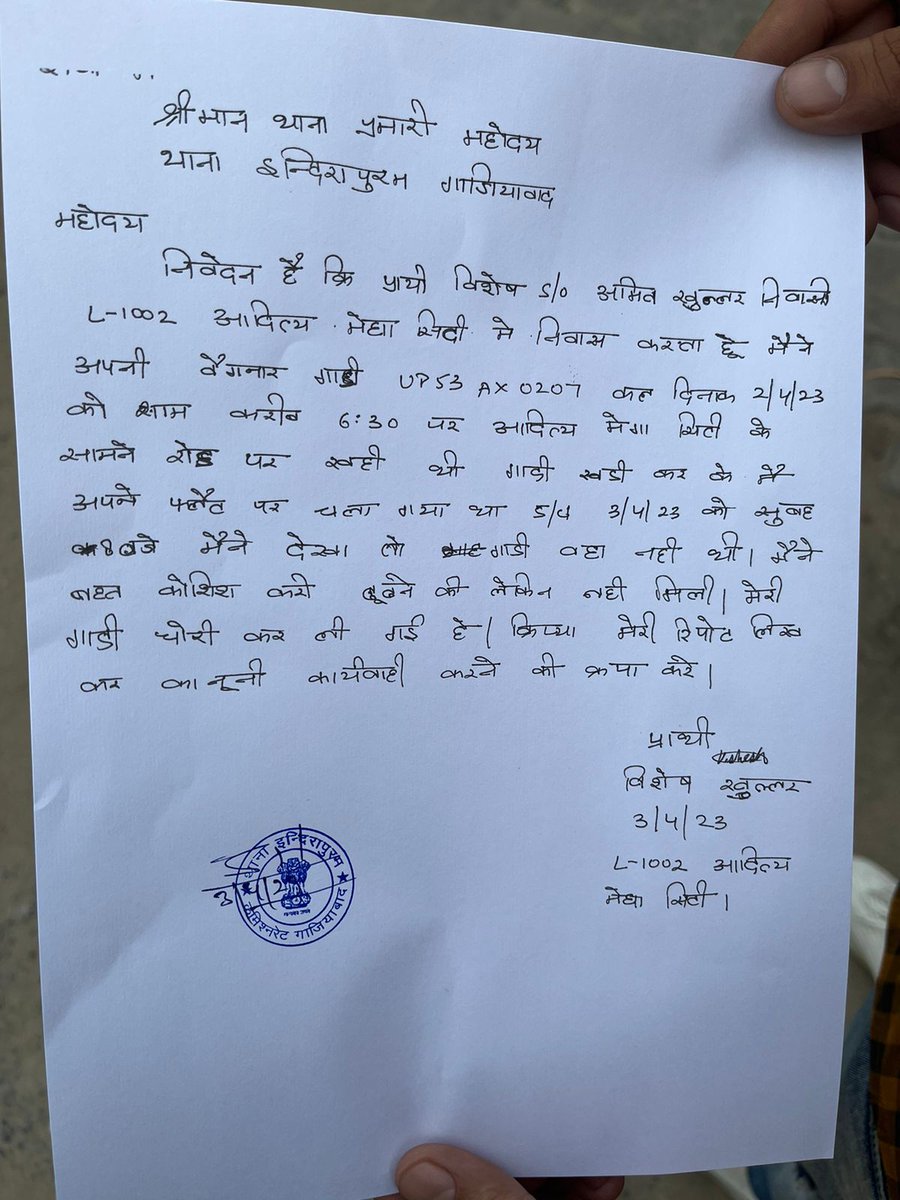 श्रीमान थाना प्रमारी महोदय
थाना इन्दिरापुरम गाजियावाद
महोदय
निवेदन है कि प्रार्थी विशेष S/O अमित खुल्लर निवासी
L-1002 आदित्य मेघा सिटी मे निवास करता हू मैने
अपनी वैगनार गाडी UP53 AX 0207 कल दिनाक 2/4/23
को शाम करीब 6:30 पर आदित्य मेगा सिटी के
सामने रोड पर खडी थी गाडी खडी कर के मै
अपने फ्लैट पर चला गया था 3/4/23 को सुबह
8 बजे मैने देखा तो गाडी वहा नही थी। मैने
बहत कोशिश करी ढूढने की लेकिन नही मिली। मेरी
गाडी चोरी कर ली गई है। क्रिप्या मेरी रिपोट लिख
कर कानूनी कार्यवाही करने की क्रपा करे।
प्रार्थी
Vishesh
विशेष खुल्लर
3/4/23
L-1002 आदित्य
मेघा सिटी।
थाना इन्दिरापुरम
कमिश्नरेट गाजियाबाद